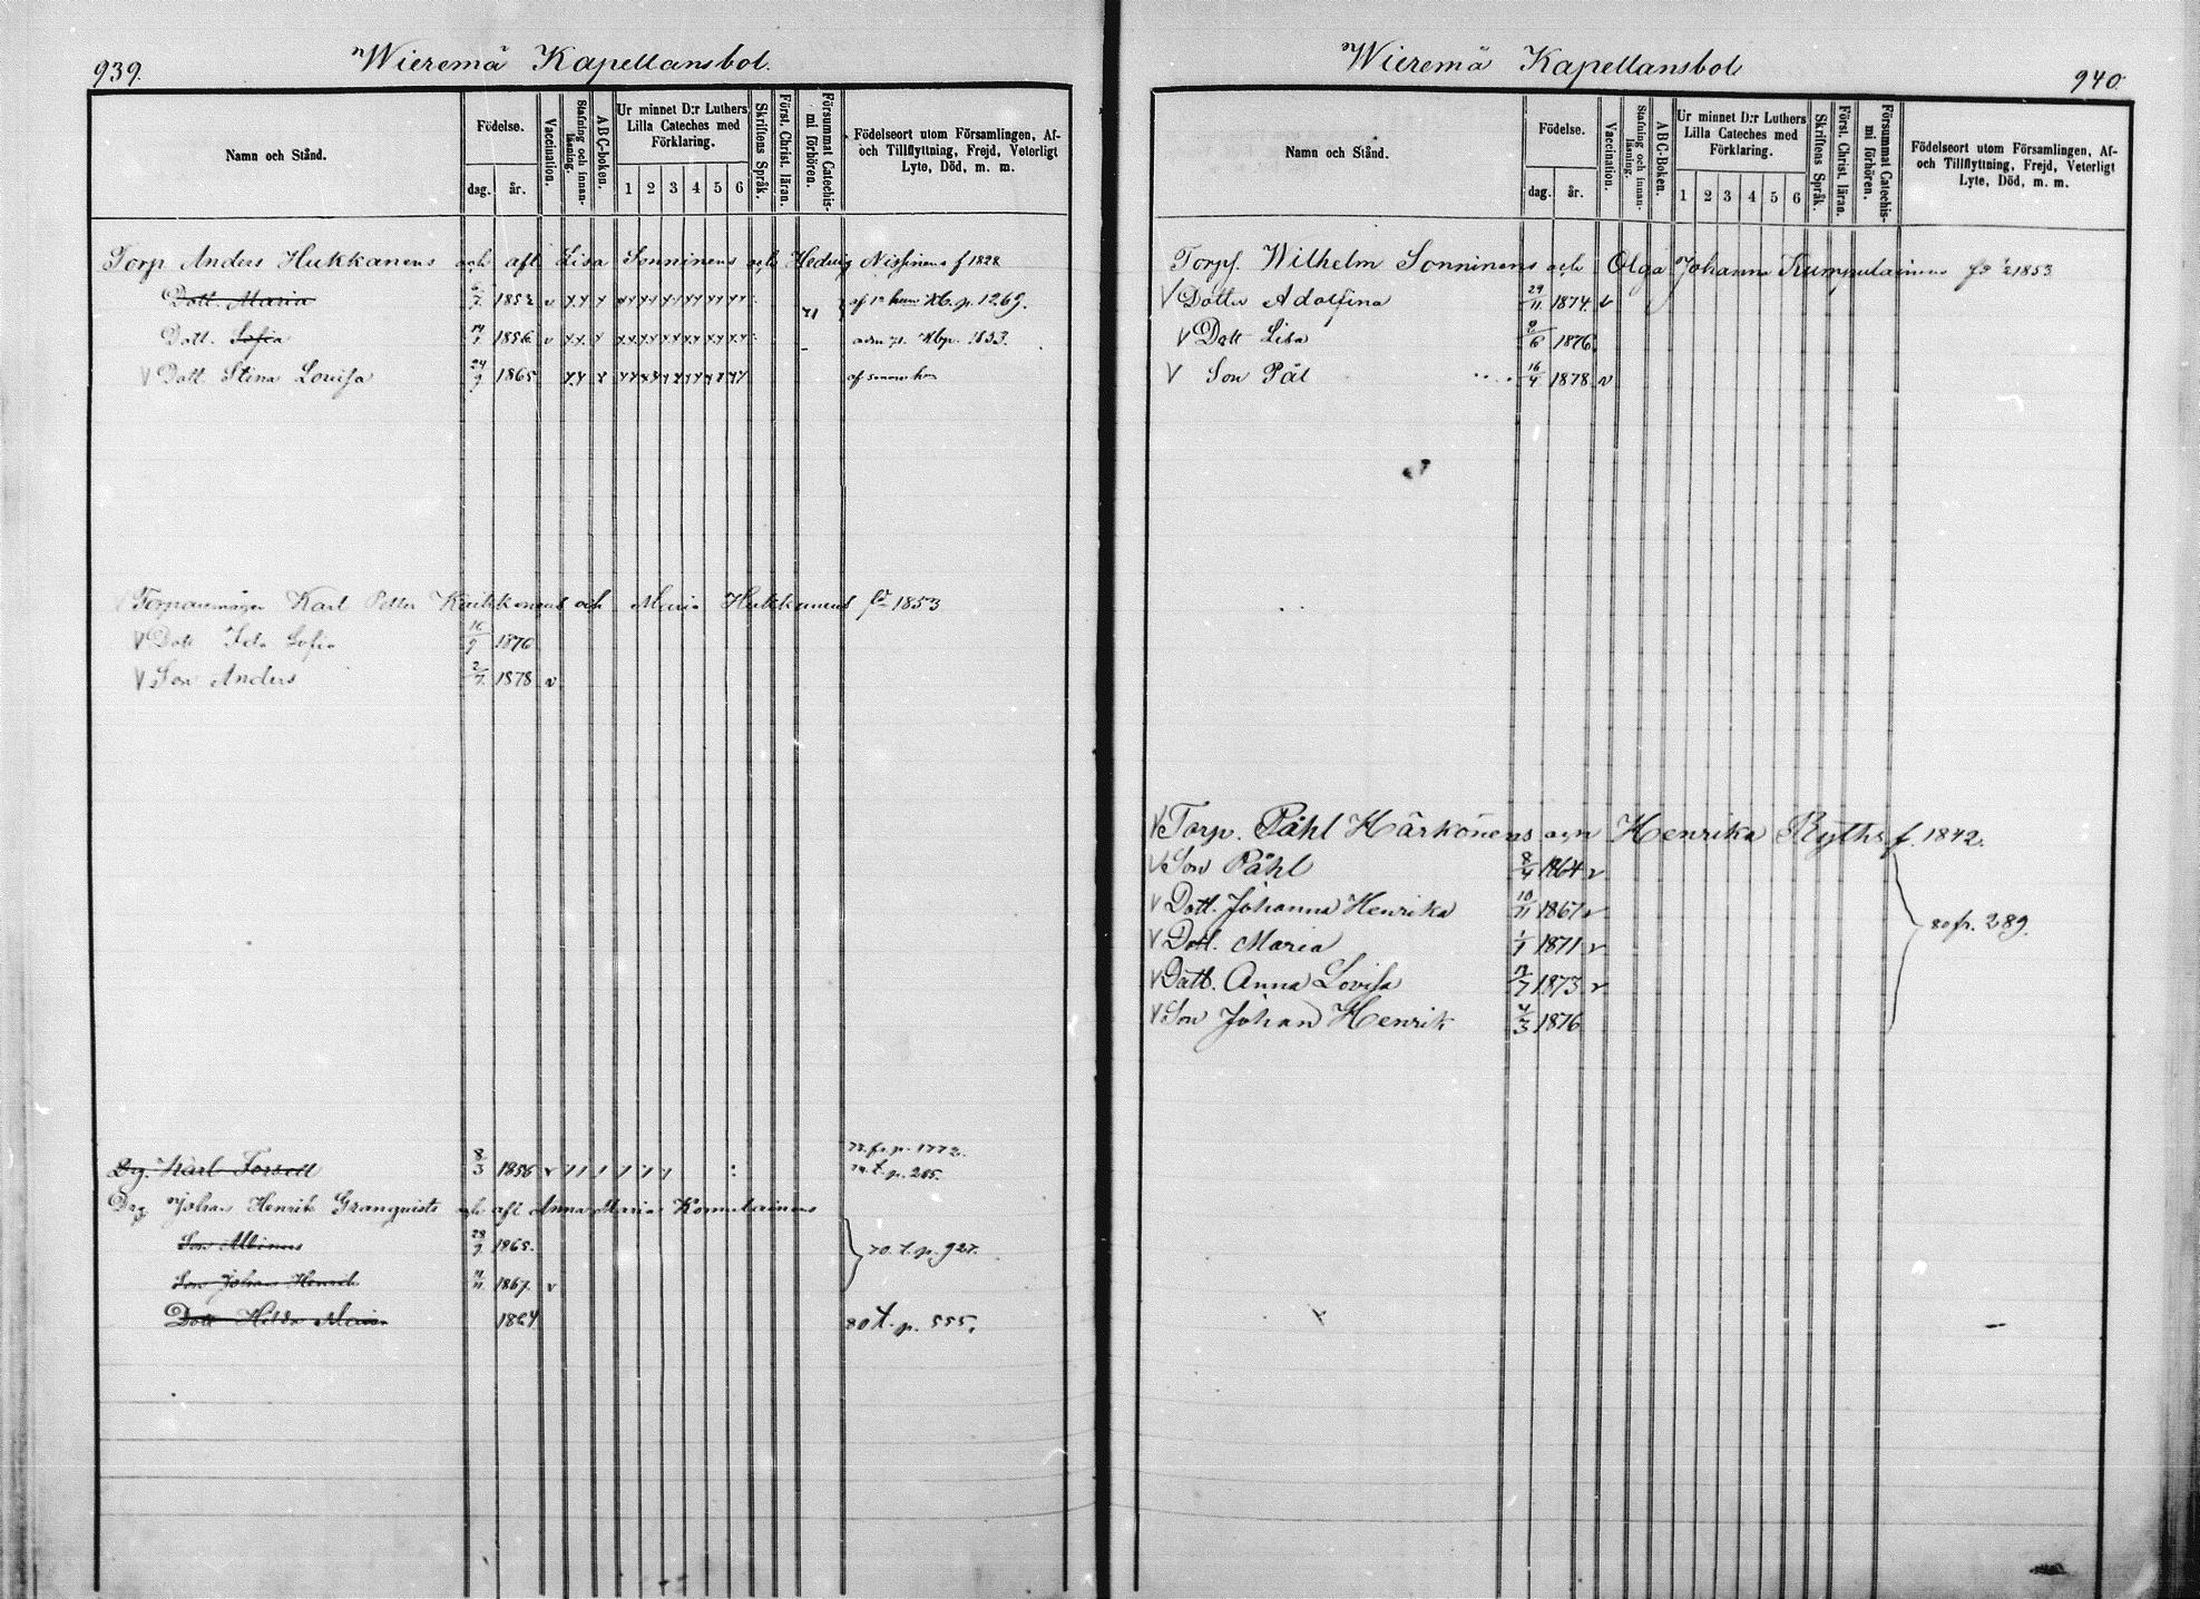 939.
Wieremä Kapellansbol.
Namn och Stånd.
Födelse.
dag.
år.
Vaccination.
Stafning och innanläsning.
ABC-boken.
Ur minnet D:r Luthers
Lilla Cateches med
Förklaring.
1 2 3 4 5 6
Skriftens Språk.
Först. Christ. läran.
Försummat Catechis-
mi förhören.
Födelseort utom Församlingen, Af-
och Tillflyttning, Frejd, Veterligt
Lyte, Död, m. m.
Torp Anders Hukkanens och afl Lisa Sonninens och Hedvig Nissinens f 1828
Dott. Maria 1852 v p. 1269.
Dott. Sofia 14 1856 v
V Dott Stina Lovisa 24/9 1865
Karl Petter och Maria Hukkanens 1853
V Dott Ida Sofia 16/9 1876
V Son Anders 2/7 1878 v
Drg. Karl Forsell 8/3 1856 v
p. 1772.
t. p. 285.
Drg Johan Henrik Granqvists och afl Anna Maria Komulainens
Son Albinus 29/9 1865.
70. t. p. 927.
Son Johan Henrik 11/11 1867. v
Dott Hilda Maria 1864 80 t. p. 555.
Wieremä Kapellansbol
940.
Namn och Stånd.
Födelse.
dag.
år.
Vaccination.
Stafning och innanläsning.
ABC-Boken.
Ur minnet D:r Luthers
Lilla Cateches med
Förklaring.
1 2 3 4 5 6
Skriftens Språk.
Först. Christ. läran.
Försummat Catechis-
mi förhören.
Födelseort utom Församlingen, Af-
och Tillflyttning, Frejd, Veterligt
Lyte, Död, m. m.
Torpf. Wilhelm Sonninens och Olga Johanna Kumpulainens 1853
V Dotter Adolfina 29/11 1874. v
V Dott Lisa 9/6 1876
V Son Pål 16/4 1878 v
V Torp. Påhl Härkönens och Henrika Ryths f. 1842.
V Son Påhl 8/4 1864 v
V Dott. Johanna Henrika 10/11 1867 v
80 fr. 289.
V Dott. Maria 1/1 1871 v
V Dott. Anna Lovisa 1873 v
V Son Johan Henrik 4/3 1876